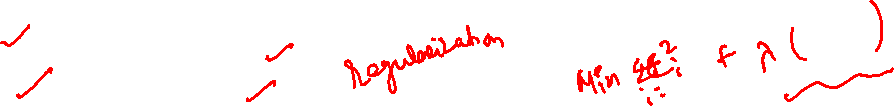 Regularization
Min Σε²ᵢ + λ ( )